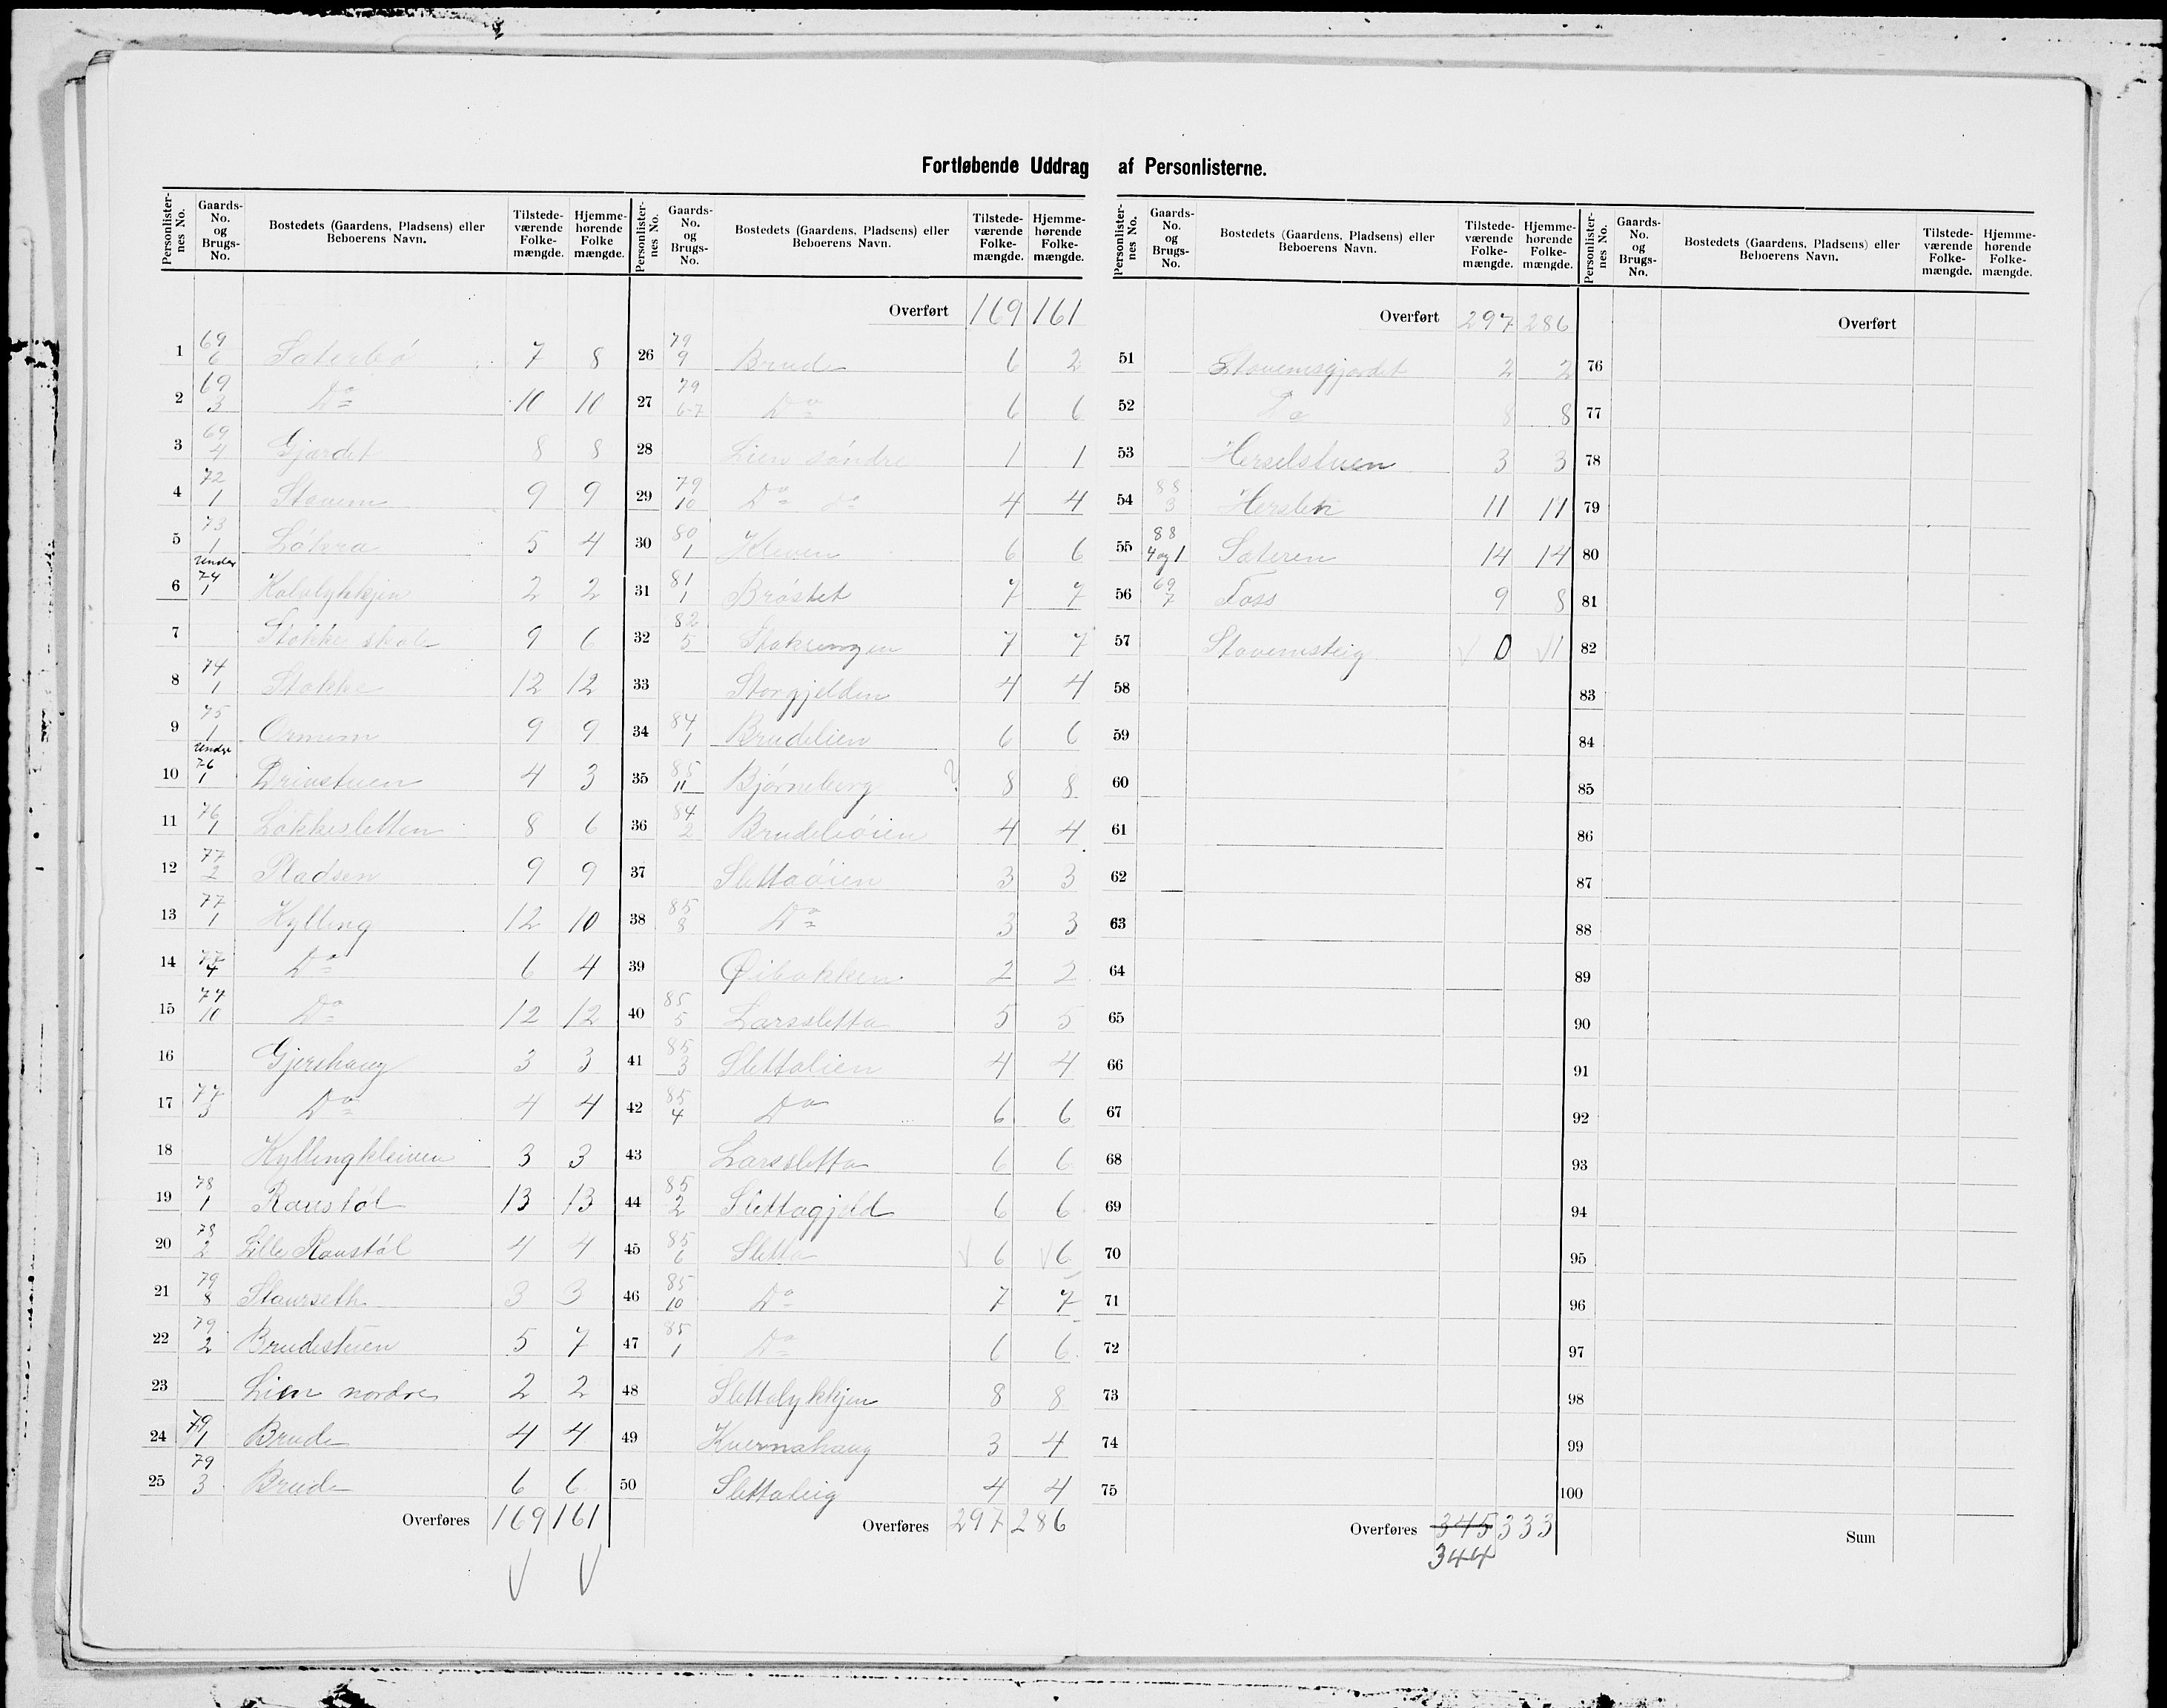 Fortløbende Uddrag af Personlisterne.
Personlister-nes No. Gaards-No. og Brugs-No. Bostedets (Gaardens, Pladsens) eller Beboerens Navn. Tilstede-værende Folke-mængde. Hjemme-hørende Folke mængde.
1 69/6 Sæterbø 7 8
2 69/3 Do 10 10
3 69/4 Gjærdet 8 8
4 72/1 Stavem 9 9
5 73/1 Løkra 5 4
6 under 74/1 Kalvlykkjen 2 2
7 Stokke skole 9 6
8 74/1 Stokke 12 12
9 75/1 Ormem 9 9
10 under 76/1 Brinstuen 4 3
11 76/1 Løkkesletten 8 6
12 77/2 Pladsen 9 9
13 77/1 Kylling 12 10
14 77/4 Do 6 4
15 77/10 Do 12 12
16 Gjershaug 3 3
17 77/3 Do 4 4
18 Kyllingkleiven 3 3
19 78/1 Ranstøl 13 13
20 78/2 Lille Ranstøl 4 4
21 79/8 Staurseth 3 3
22 79/2 Brudestuen 5 7
23 Lien nordre 2 2
24 79/1 Brude 4 4
25 79/3 Brude 6 6
Overføres 169 161
Personlister-nes No. Gaards-No. og Brugs-No. Bostedets (Gaardens, Pladsens) eller Beboerens Navn. Tilstede-værende Folke-mængde. Hjemme-hørende Folke-mængde.
Overført 169 161
26 79/9 Brude 6 2
27 79/6-7 Do 6 6
28 Lien søndre 1 1
29 79/10 Do do 4 4
30 80/1 Kleven 6 6
31 81/1 Brøstet 7 7
32 82/5 7 7
33 Storgjelden 4 4
34 84/1 Brudelien 6 6
35 85/11 Bjørneberg ? 8 8
36 84/2 Brudeliøien 4 4
37 Slettaøien 3 3
38 85/8 Do 3 3
39 Øibakken 2 2
40 85/5 Larssletta 5 5
41 85/3 Slettalien 4 4
42 85/4 Do 6 6
43 Larssletta 6 6
44 85/2 Slettagjeld 6 6
45 85/6 Sletta √ 6 √ 6
46 85/10 Do 7 7
47 85/1 Do 6 6
48 Slettalykkjen 8 8
49 Kvernahaug 3 4
50 Slettateig 4 4
Overføres 297 286
Personlister-nes No. Gaards-No. og Brugs-No. Bostedets (Gaardens, Pladsens) eller Beboerens Navn. Tilstede-værende Folke-mængde. Hjemme-hørende Folke-mængde.
Overført 297 286
51 Stavemsgjærdet 2 2
52 Do 8 8
53 Herselstuen 3 3
54 88/3 Hersleh 11 11
55 88/4 og 1 Sæteren 14 14
56 69/7 Foss 9 8
57 Stavemsteig √ 0 √ 1
58
59
60
61
62
63
64
65
66
67
68
69
70
71
72
73
74
75
Overføres 345 333
344
Personlister-nes No. Gaards-No. og Brugs-No. Bostedets (Gaardens, Pladsens) eller Beboerens Navn. Tilstede-værende Folke-mængde. Hjemme-hørende Folke-mængde.
Overført
76
77
78
79
80
81
82
83
84
85
86
87
88
89
90
91
92
93
94
95
96
97
98
99
100
Sum